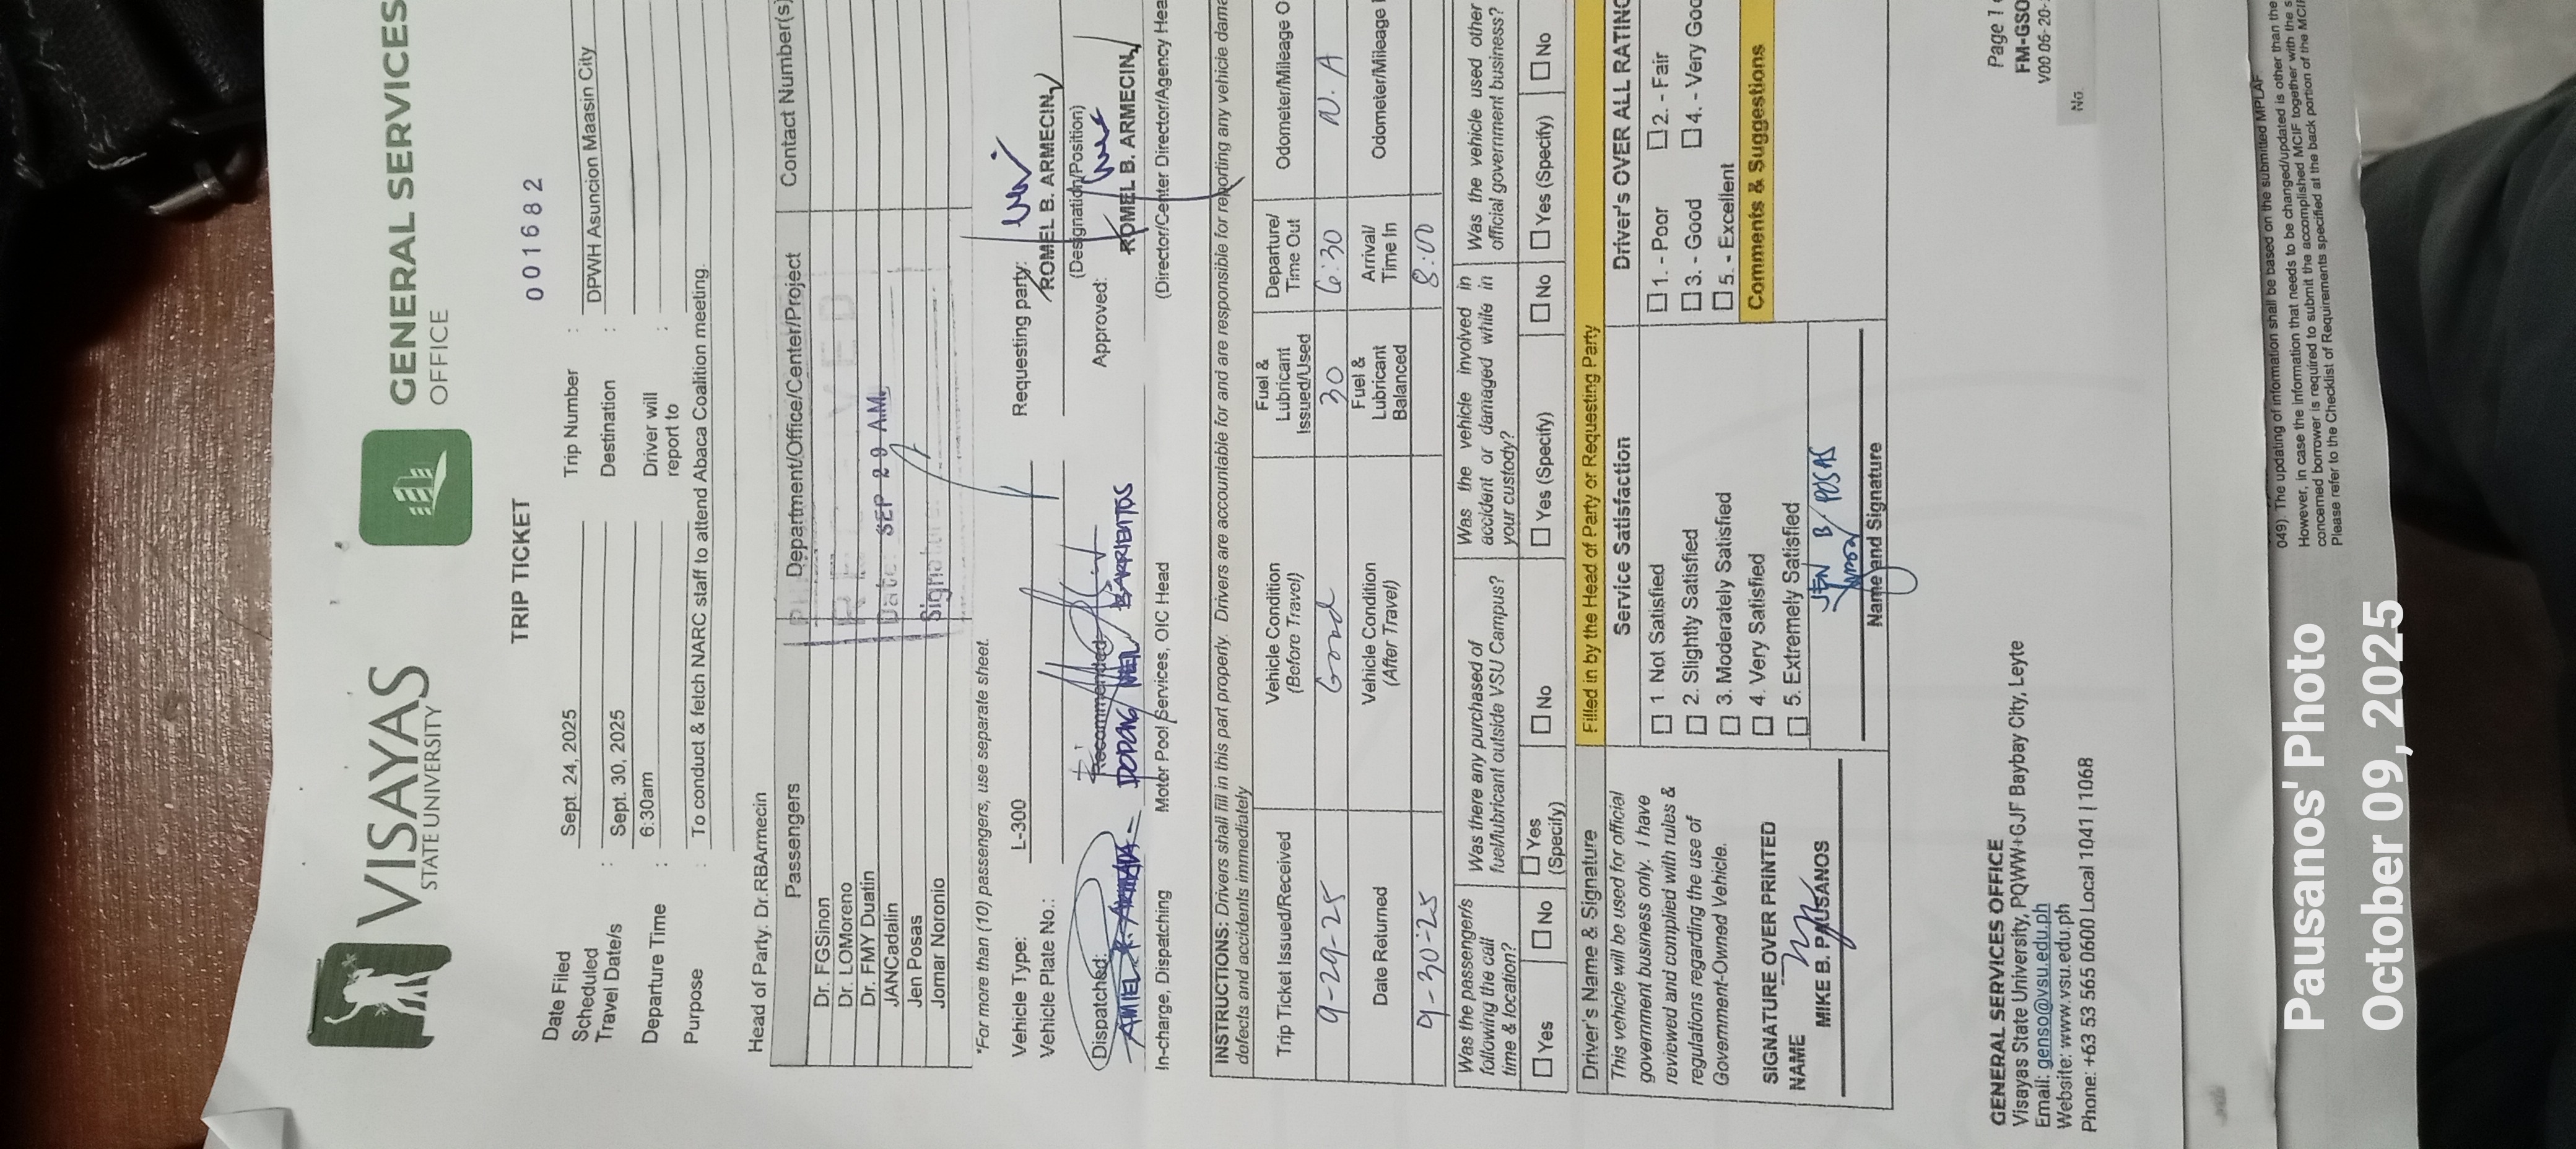 VISAYAS
STATE UNIVERSITY
GENERAL SERVICES
OFFICE
TRIP TICKET
001682
Date Filed Sept. 24, 2025 Trip Number :
Scheduled
Travel Date/s : Sept. 30, 2025 Destination : DPWH Asuncion Maasin City
Departure Time : 6:30am Driver will
report to :
Purpose : To conduct & fetch NARC staff to attend Abaca Coalition meeting.
Head of Party: Dr.RBArmecin
Passengers Department/Office/Center/Project Contact Number(s)
Dr. FGSinon
Dr. LOMoreno
Dr. FMY Duatin
JANCadalin
Jen Posas
Jomar Noronio
RECEIVED
Date: SEP 29 AM
Signature
*For more than (10) passengers, use separate sheet.
Vehicle Type: L-300 Requesting party:
Vehicle Plate No.: ROMEL B. ARMECIN
(Designation/Position)
Dispatched: Recommended: Approved:
DODONG NEIL BARRIENTOS ROMEL B. ARMECIN
In-charge, Dispatching Motor Pool Services, OIC Head (Director/Center Director/Agency Hea
INSTRUCTIONS: Drivers shall fill in this part properly. Drivers are accountable for and are responsible for reporting any vehicle dama
defects and accidents immediately
Trip Ticket Issued/Received Vehicle Condition
(Before Travel) Fuel &
Lubricant
Issued/Used Departure/
Time Out Odometer/Mileage O
9-29-25 Good 30 6:30 N.A
Date Returned Vehicle Condition
(After Travel) Fuel &
Lubricant
Balanced Arrival/
Time In Odometer/Mileage
9-30-25 8:00
Was the passenger/s
following the call
time & location?
Was there any purchased of
fuel/lubricant outside VSU Campus?
Was the vehicle involved in
accident or damaged while in
your custody?
Was the vehicle used other
official government business?
Yes No Yes
(Specify) No Yes (Specify) No Yes (Specify) No
Driver's Name & Signature
This vehicle will be used for official
government business only. I have
reviewed and complied with rules &
regulations regarding the use of
Government-Owned Vehicle.
SIGNATURE OVER PRINTED
NAME
MIKE B. PAUSANOS
Filled in by the Head of Party or Requesting Party
Service Satisfaction
1. Not Satisfied
2. Slightly Satisfied
3. Moderately Satisfied
4. Very Satisfied
5. Extremely Satisfied
JEN B. POSAS
Name and Signature
Driver's OVER ALL RATING
1. - Poor 2. - Fair
3. - Good 4. - Very Goo
5. - Excellent
Comments & Suggestions
GENERAL SERVICES OFFICE
Visayas State University, PQWW+GJF Baybay City, Leyte
Email: genso@vsu.edu.ph
Website: www.vsu.edu.ph
Phone: +63 53 565 0600 Local 1041 | 1068
Page 1
FM-GSO
V00 06-20-
No.
049). The updating of information shall be based on the submitted MPLAF
However, in case the information that needs to be changed/updated is other than the
concerned borrower is required to submit the accomplished MCIF together with the s
Please refer to the Checklist of Requirements specified at the back portion of the MCIF
Pausanos' Photo
October 09, 2025